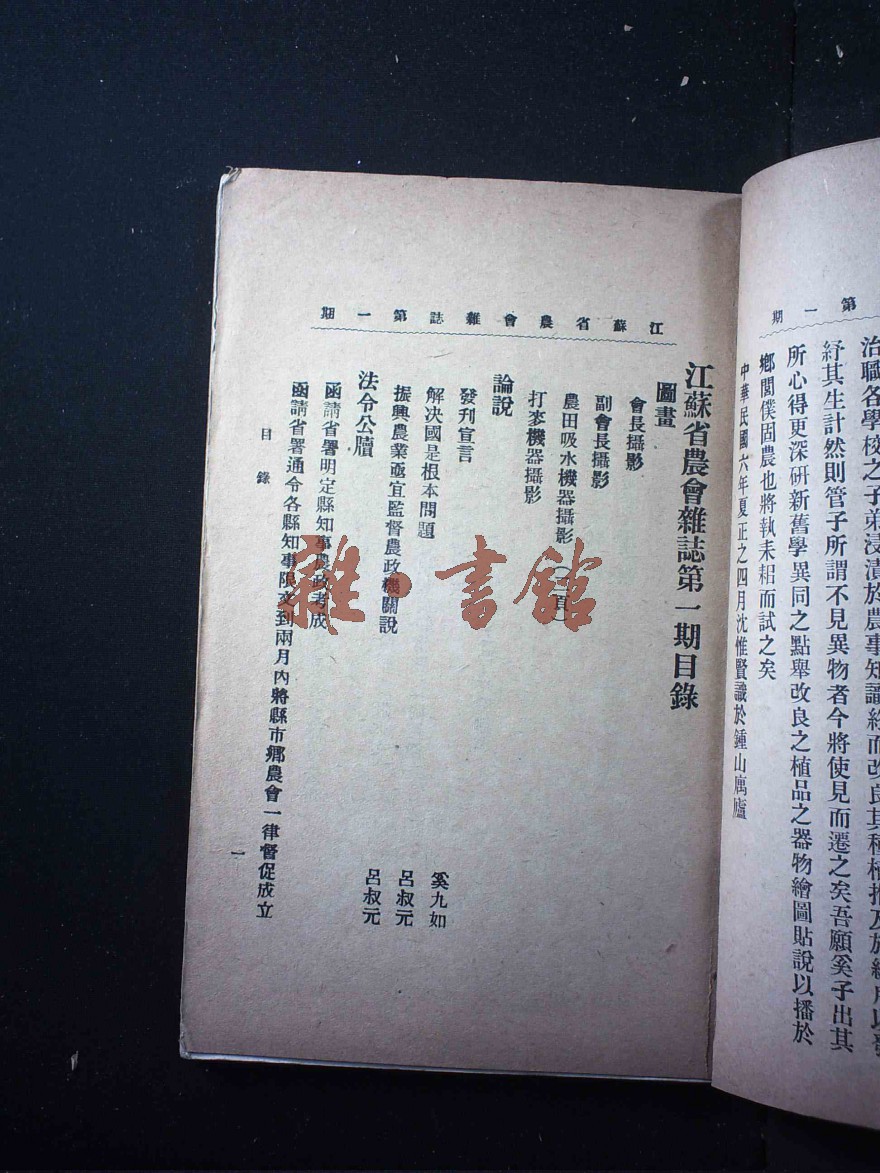 第一期
治職各學校之子弟浸漬於農事知識終而改良其種植推及於
紓其生計然則管子所謂不見異物者今將使見而遷之矣吾願奚子出其
所心得更深研新舊學異同之點舉改良之植品之器物繪圖貼說以播於
鄉閭僕固農也將執耒耜而試之矣
中華民國六年夏正之四月沈惟賢識於鍾山寓廬
江蘇省農會雜誌第一期
江蘇省農會雜誌第一期目錄
圖畫
會長攝影
副會長攝影
農田吸水機器攝影(二頁)
打麥機器攝影
論說
發刊宣言 奚九如
解決國是根本問題 呂叔元
振興農業亟宜監督農政機關說 呂叔元
法令公牘
函請省署明定縣知事農政考成
函請省署通令各縣知事限文到兩月內將縣市鄉農會一律督促成立
目錄
一
雜·書館